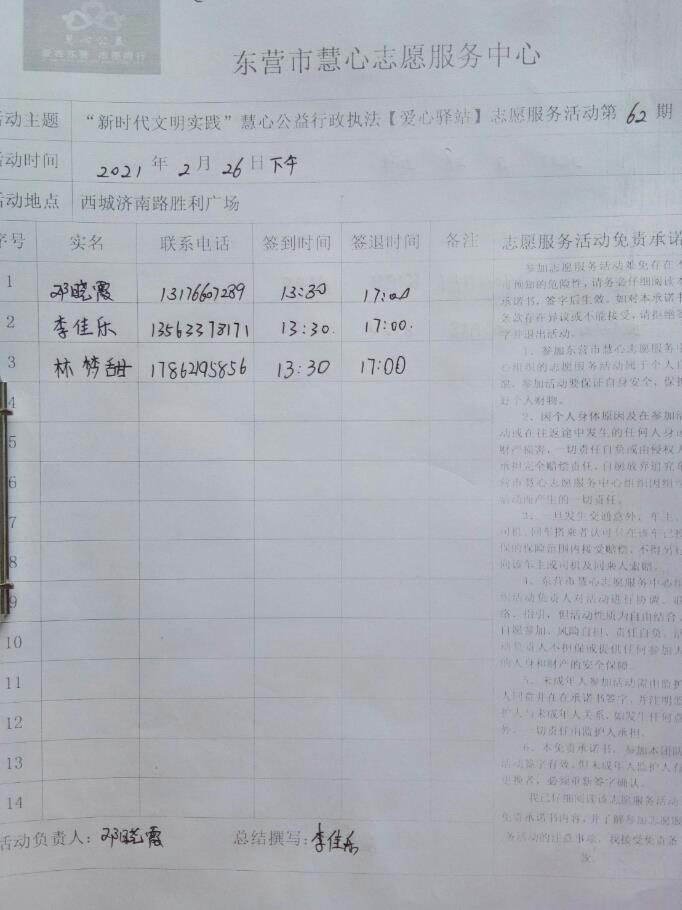 慧心公益
爱在东营 志愿同行
东营市慧心志愿服务中心
活动主题 “新时代文明实践”慧心公益行政执法【爱心驿站】志愿服务活动第 62 期
活动时间 2021 年 2 月 26 日下午
活动地点 西城济南路胜利广场
序号 实名 联系电话 签到时间 签退时间 备注 志愿服务活动免责承诺
1 邓晓霞 13176607289 13:30 17:00
2 李佳乐 13563373171 13:30. 17:00.
3 林梦甜 17862195856 13:30 17:00
4
5
6
7
8
9
10
11
12
13
14
参加志愿服务活动难免存在
预知的危险性，请务必仔细阅读本
承诺书，签字后生效。如对本承诺书
条款存在异议或不能接受，请拒绝签
字并退出活动。
1、参加东营市慧心志愿服务中
心组织的志愿服务活动属于个人自
愿，参加活动要保证自身安全，保护
好个人财物。
2、因个人身体原因及在参加活
动或在往返途中发生的任何人身或
财产损害，一切责任自负或由侵权人
承担完全赔偿责任，自愿放弃追究东
营市慧心志愿服务中心组织因组织
活动而产生的一切责任。
3、一旦发生交通意外，车主、
司机、同车搭乘者认可只在该车已投
保的保险范围内接受赔偿，不得另行
向该车主或司机及同乘人索赔。
4、东营市慧心志愿服务中心组
织活动负责人对活动进行协调、联
络、指引，但活动性质为自由结合、
自愿参加、风险自担、责任自负。活
动负责人不担保或提供任何参加人
的人身和财产的安全保障。
5、未成年人参加活动需由监护
人同意并在在承诺书签字，并注明监
护人与未成年人关系，如发生任何意
外，一切责任由监护人承担。
6、本免责承诺书，参加本团队
活动签字有效，但未成年人监护人有
更换者，必须重新签字确认。
我已仔细阅读该志愿服务活动
免责承诺书内容，并了解参加志愿服
务活动的注意事项，我接受免责条
款。
活动负责人：邓晓霞 总结撰写：李佳乐